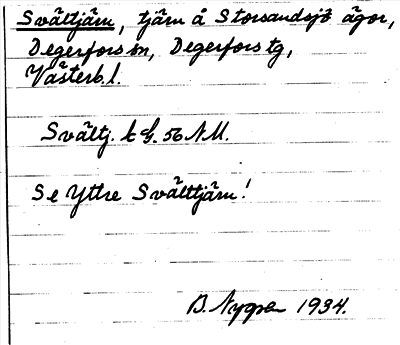 Svälttjärn, tjärn å Storsandsjö ägor,
Degerfors sn, Degerfors tg,
Västerb. l.
Svältj. k bl. 56 N.M.
Se Yttre Svälttjärn!
B. Nygren 1934.